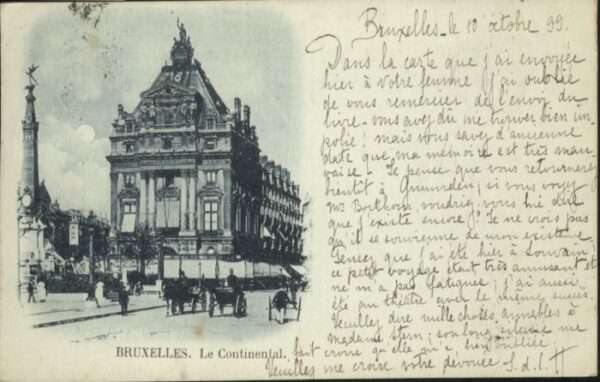 Bruxelles le 10 octobre 99.
Dans la carte que j'ai envoyée
hier à votre femme j'ai oublié
de vous remercier de l'envoi du
livre - vous avez dû me trouver bien im-
polie! mais vous savez d'ancienne
date que ma mémoire est très mau-
vaise - Je pense que vous retournerez
bientôt à si vous voyez
Mr voudriez vous lui dire
que j'existe encore? Je ne crois pas
qu'il se souvienne de mon existence.
Pensez que j'ai été hier à Louvain
ce petit voyage était très amusant et
ne m'a pas fatiguée; j'ai aussi
été au théâtre avec le même succès.
Veuillez dire mille choses aimables à
madame Stern; son long silence me
fait croire qu'elle m'a bien oubliée.
Veuillez me croire votre dévouée S.d.l.H
BRUXELLES. Le Continental.